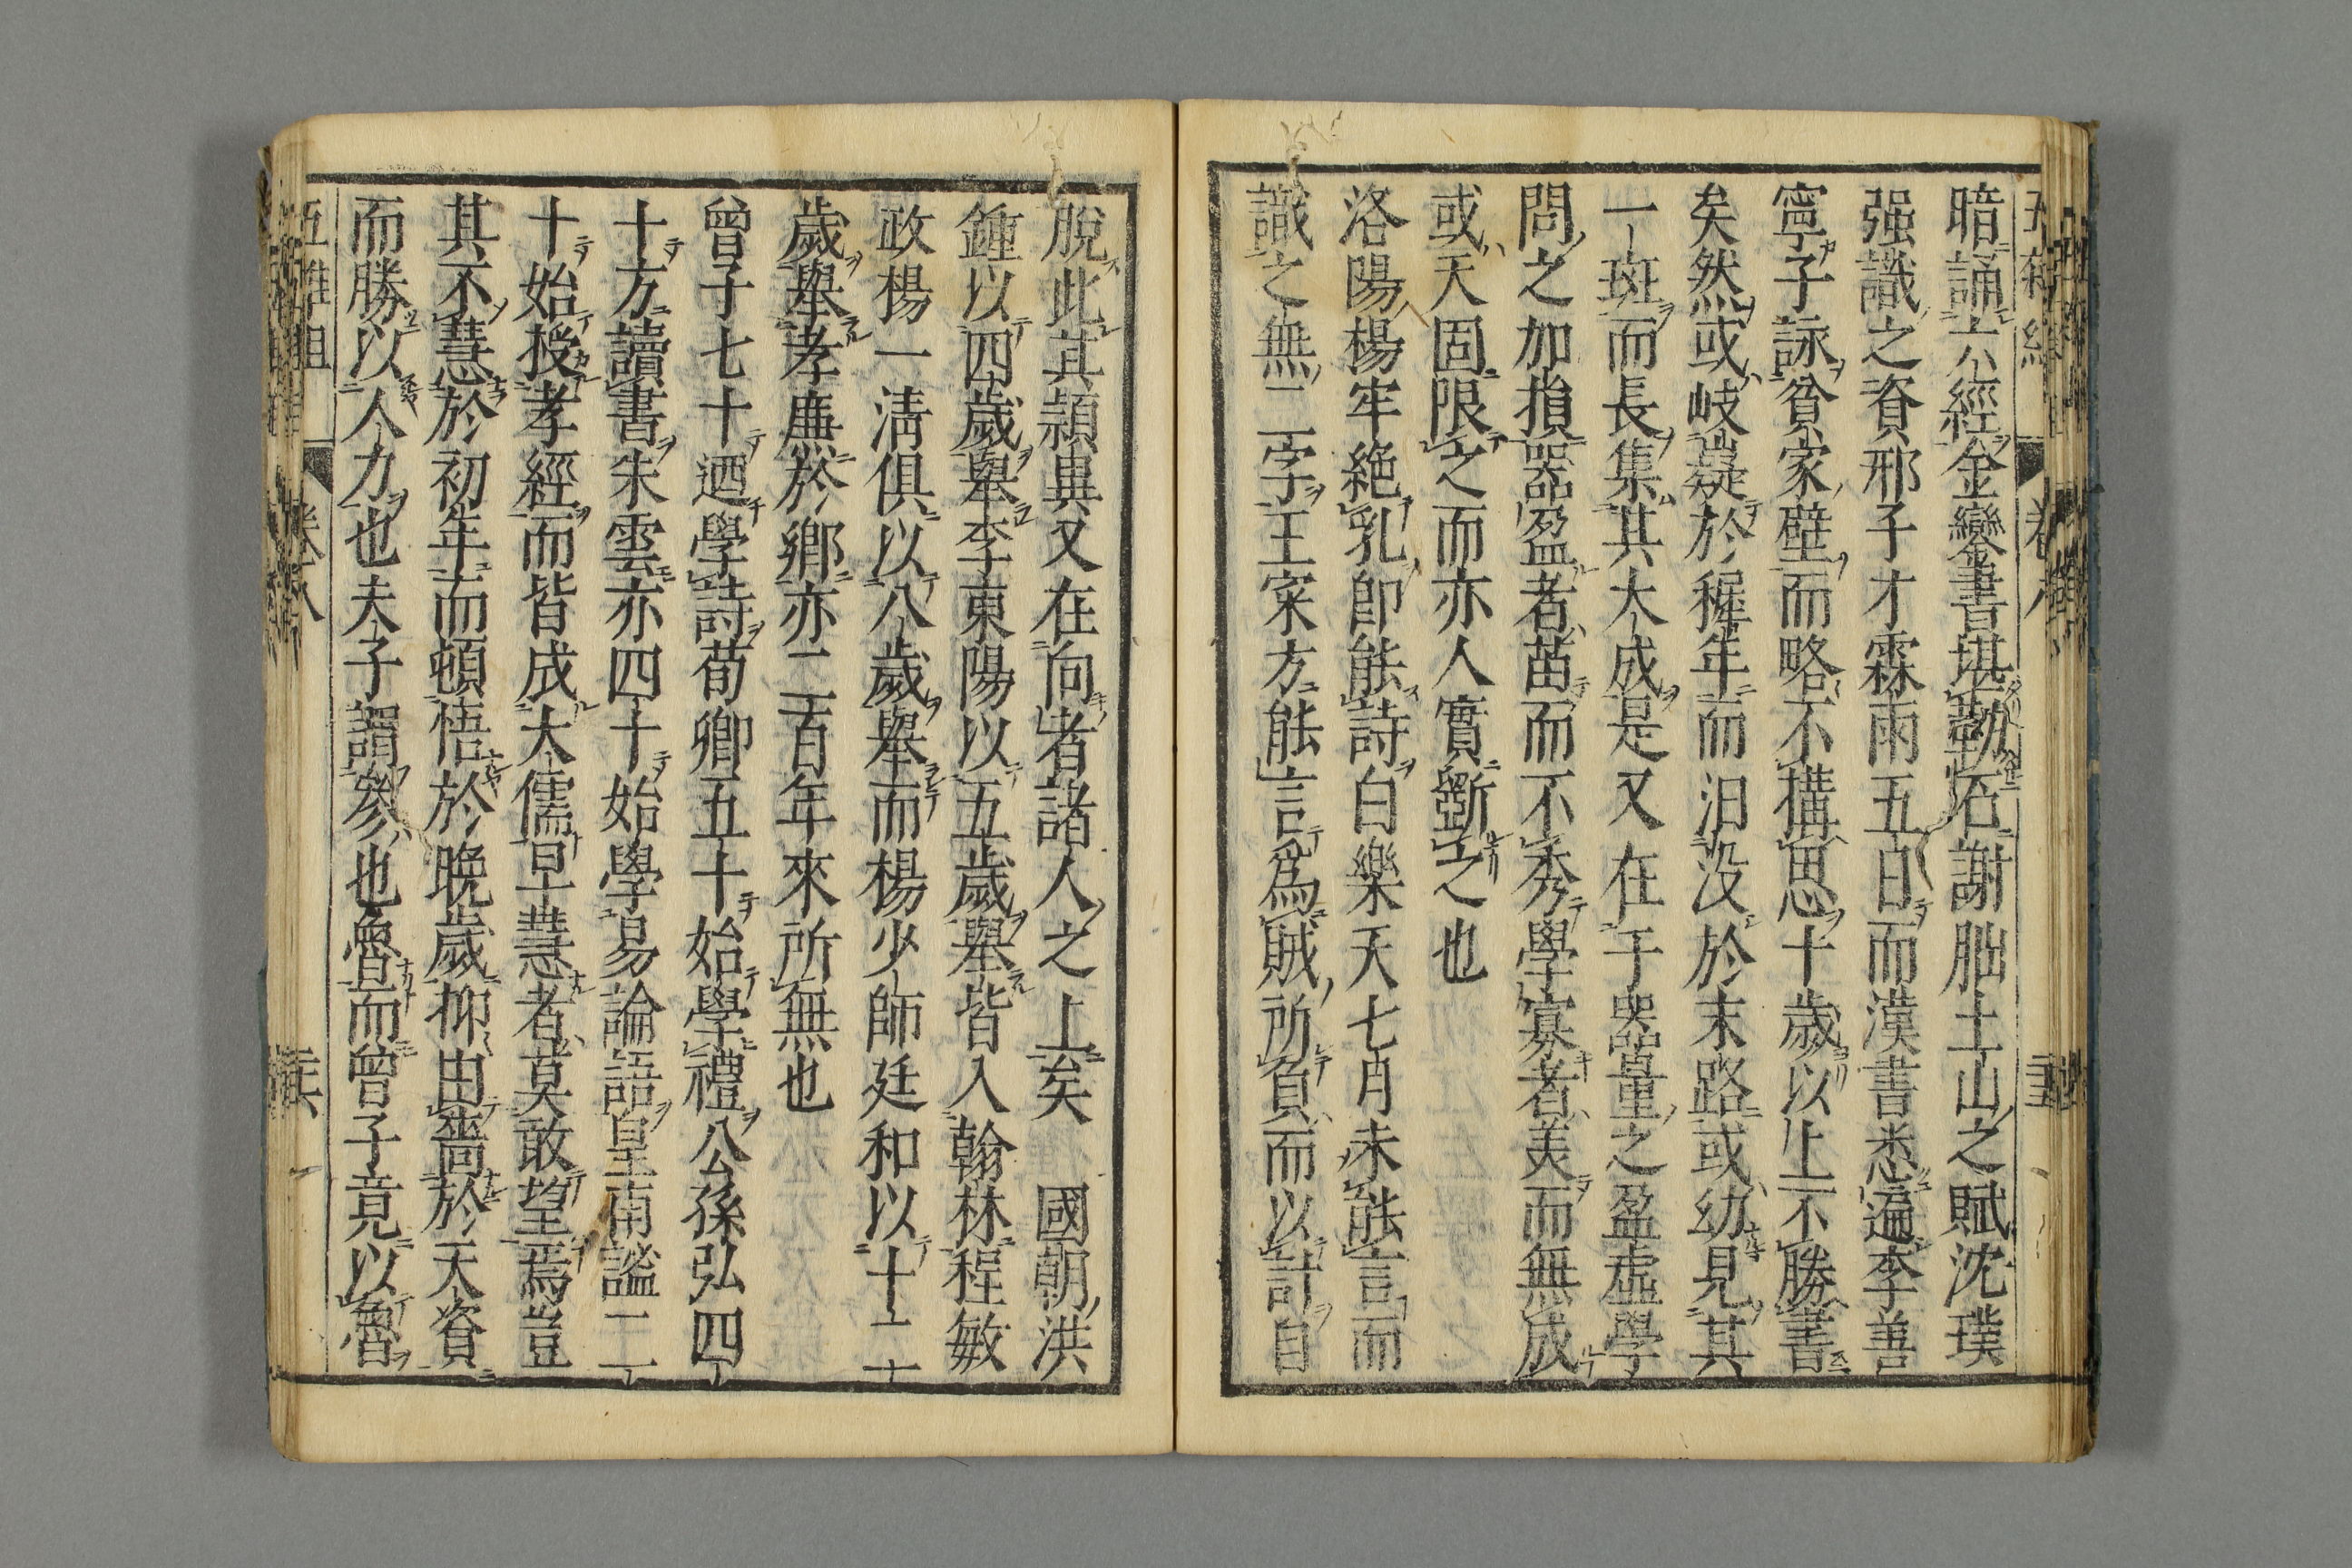 暗誦六經金鑾書堪勒石謝朏土山之賦沈璞
强識之資邢子才霖雨五日而漢書悉遍李善
寧子詠貧家壁而略不搆思十歲以上不勝書
矣然或岐嶷於穉年而汨没於末路或幼見其
一斑而長集其大成是又在于器量之盈虚學
問之加損器盈者苗而不秀學寡者美而無成
或天固限之而亦人實斵之也
洛陽楊牢絶乳卽能詩白樂天七月未能言而
識之無二字王寀方能言爲賊所負而以計自
脫此其頴異又在向者諸人之上矣 國朝洪
鍾以四歲舉李東陽以五歲舉皆入翰林程敏
政楊一淸俱以八歲舉而楊少師廷和以十二
歲舉孝廉於鄉亦二百年來所無也
曾子七十廼學詩荀卿五十始學禮公孫弘四
十方讀書朱雲亦四十始學易論語皇甫謐二
十始授孝經而皆成大儒早慧者莫敢望焉豈
其不慧於初年而頓悟於晚歲抑由嗇於天資
而勝以人力也夫子謂參也魯而曾子竟以魯
五雜俎 卷八